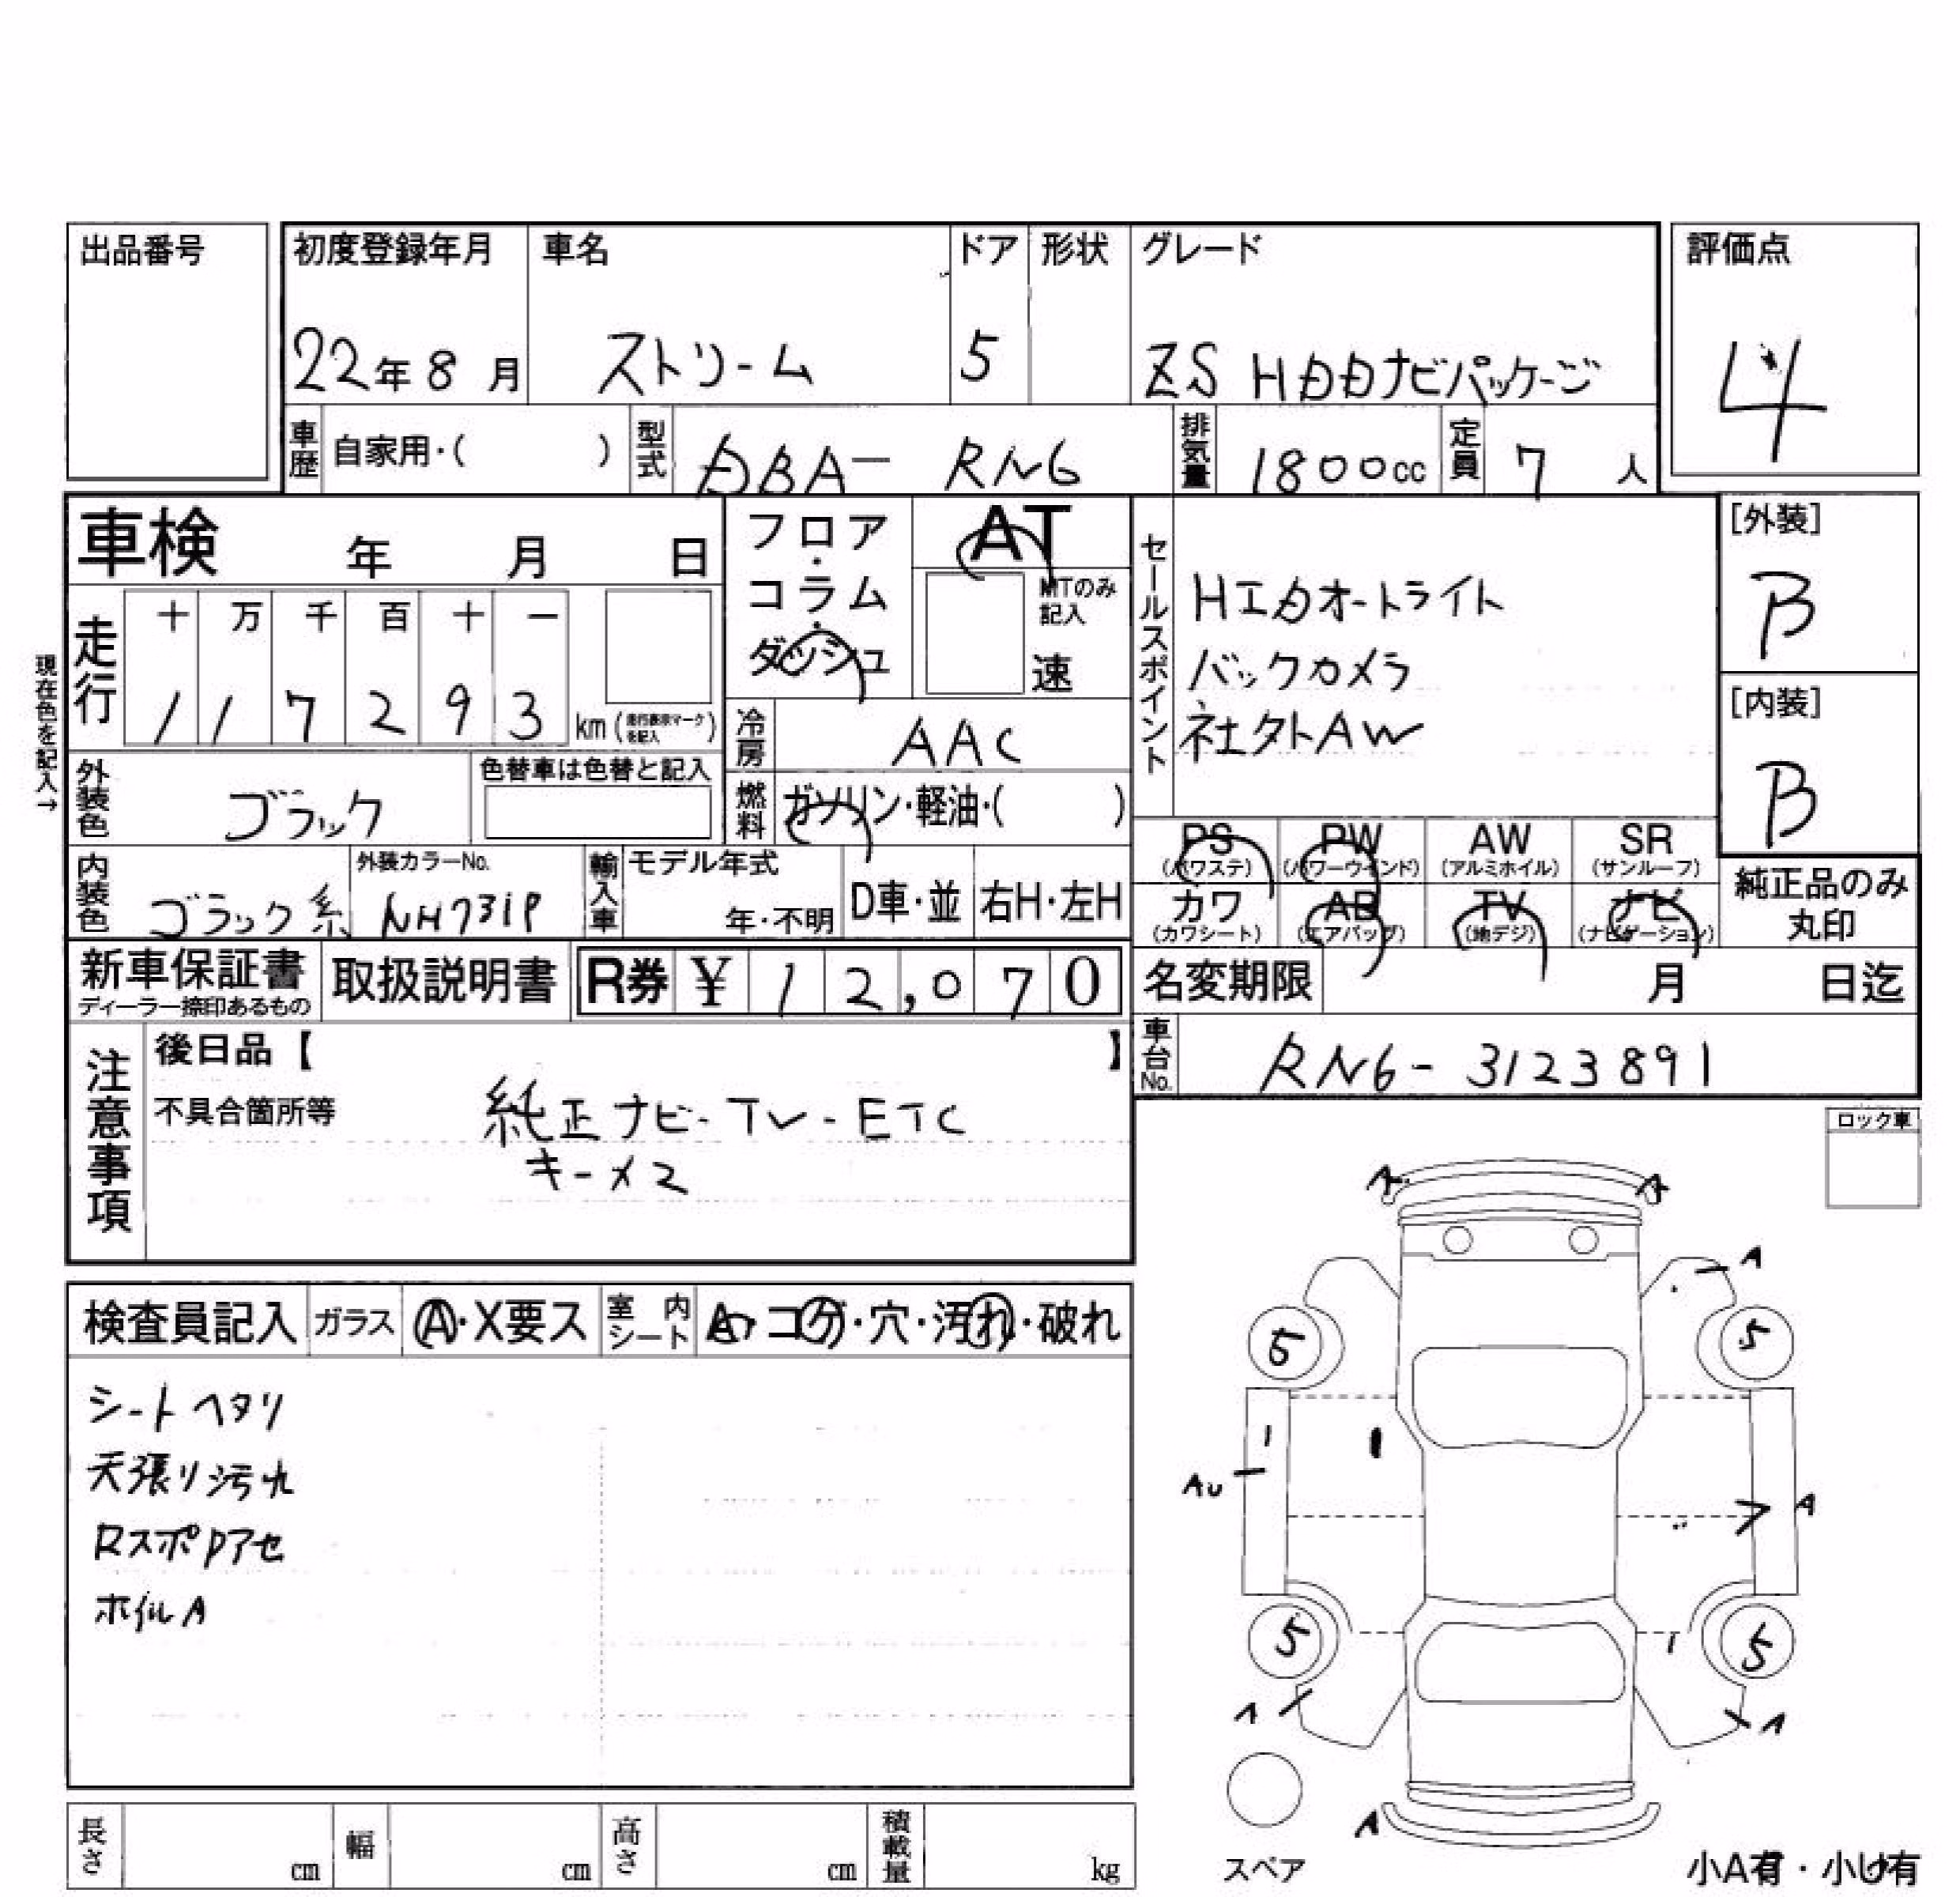 出品番号
初度登録年月 車名 ドア 形状 グレード
評価点
22年8月 ストリーム 5 ZS HDDナビパッケージ
4
車歴 自家用・( ) 型式 DBA- RN6 排気量 1800cc 定員 7 人
車検 年 月 日
フロア・コラム・ダッシュ
AT
MTのみ記入
速
セールスポイント
HIDオートライト
バックカメラ
社外AW
[外装]
B
[内装]
B
現在色を記入→
走行 十 万 千 百 十 一
1 1 7 2 9 3 km (走行表示マークを記入)
冷房 AAC
外装色 ブラック 色替車は色替と記入
燃料 ガソリン・軽油・( )
内装色 ブラック系 外装カラーNo. NH731P
輸入車 モデル年式 年・不明 D車・並 右H・左H
PS (パワステ) PW (パワーウインド) AW (アルミホイル) SR (サンルーフ)
カワ (カワシート) AB (エアバッグ) TV (地デジ) ナビ (ナビゲーション)
純正品のみ丸印
新車保証書 ディーラー捺印あるもの 取扱説明書 R券 ¥ 12,070
名変期限 月 日迄
車台No. RN6-3123891
注意事項
後日品【 】
不具合箇所等 純正ナビ-TV-ETC
キー×2
ロック車
検査員記入 ガラス A・X要ス 室内シート A・コゲ・穴・汚れ・破れ
シートヘタリ
天張り汚れ
RスポPアセ
ホイルA
A A
A
5 5
AU
A
5 5
A A
A
スペア
小A有・小U有
長さ cm 幅 cm 高さ cm 積載量 kg